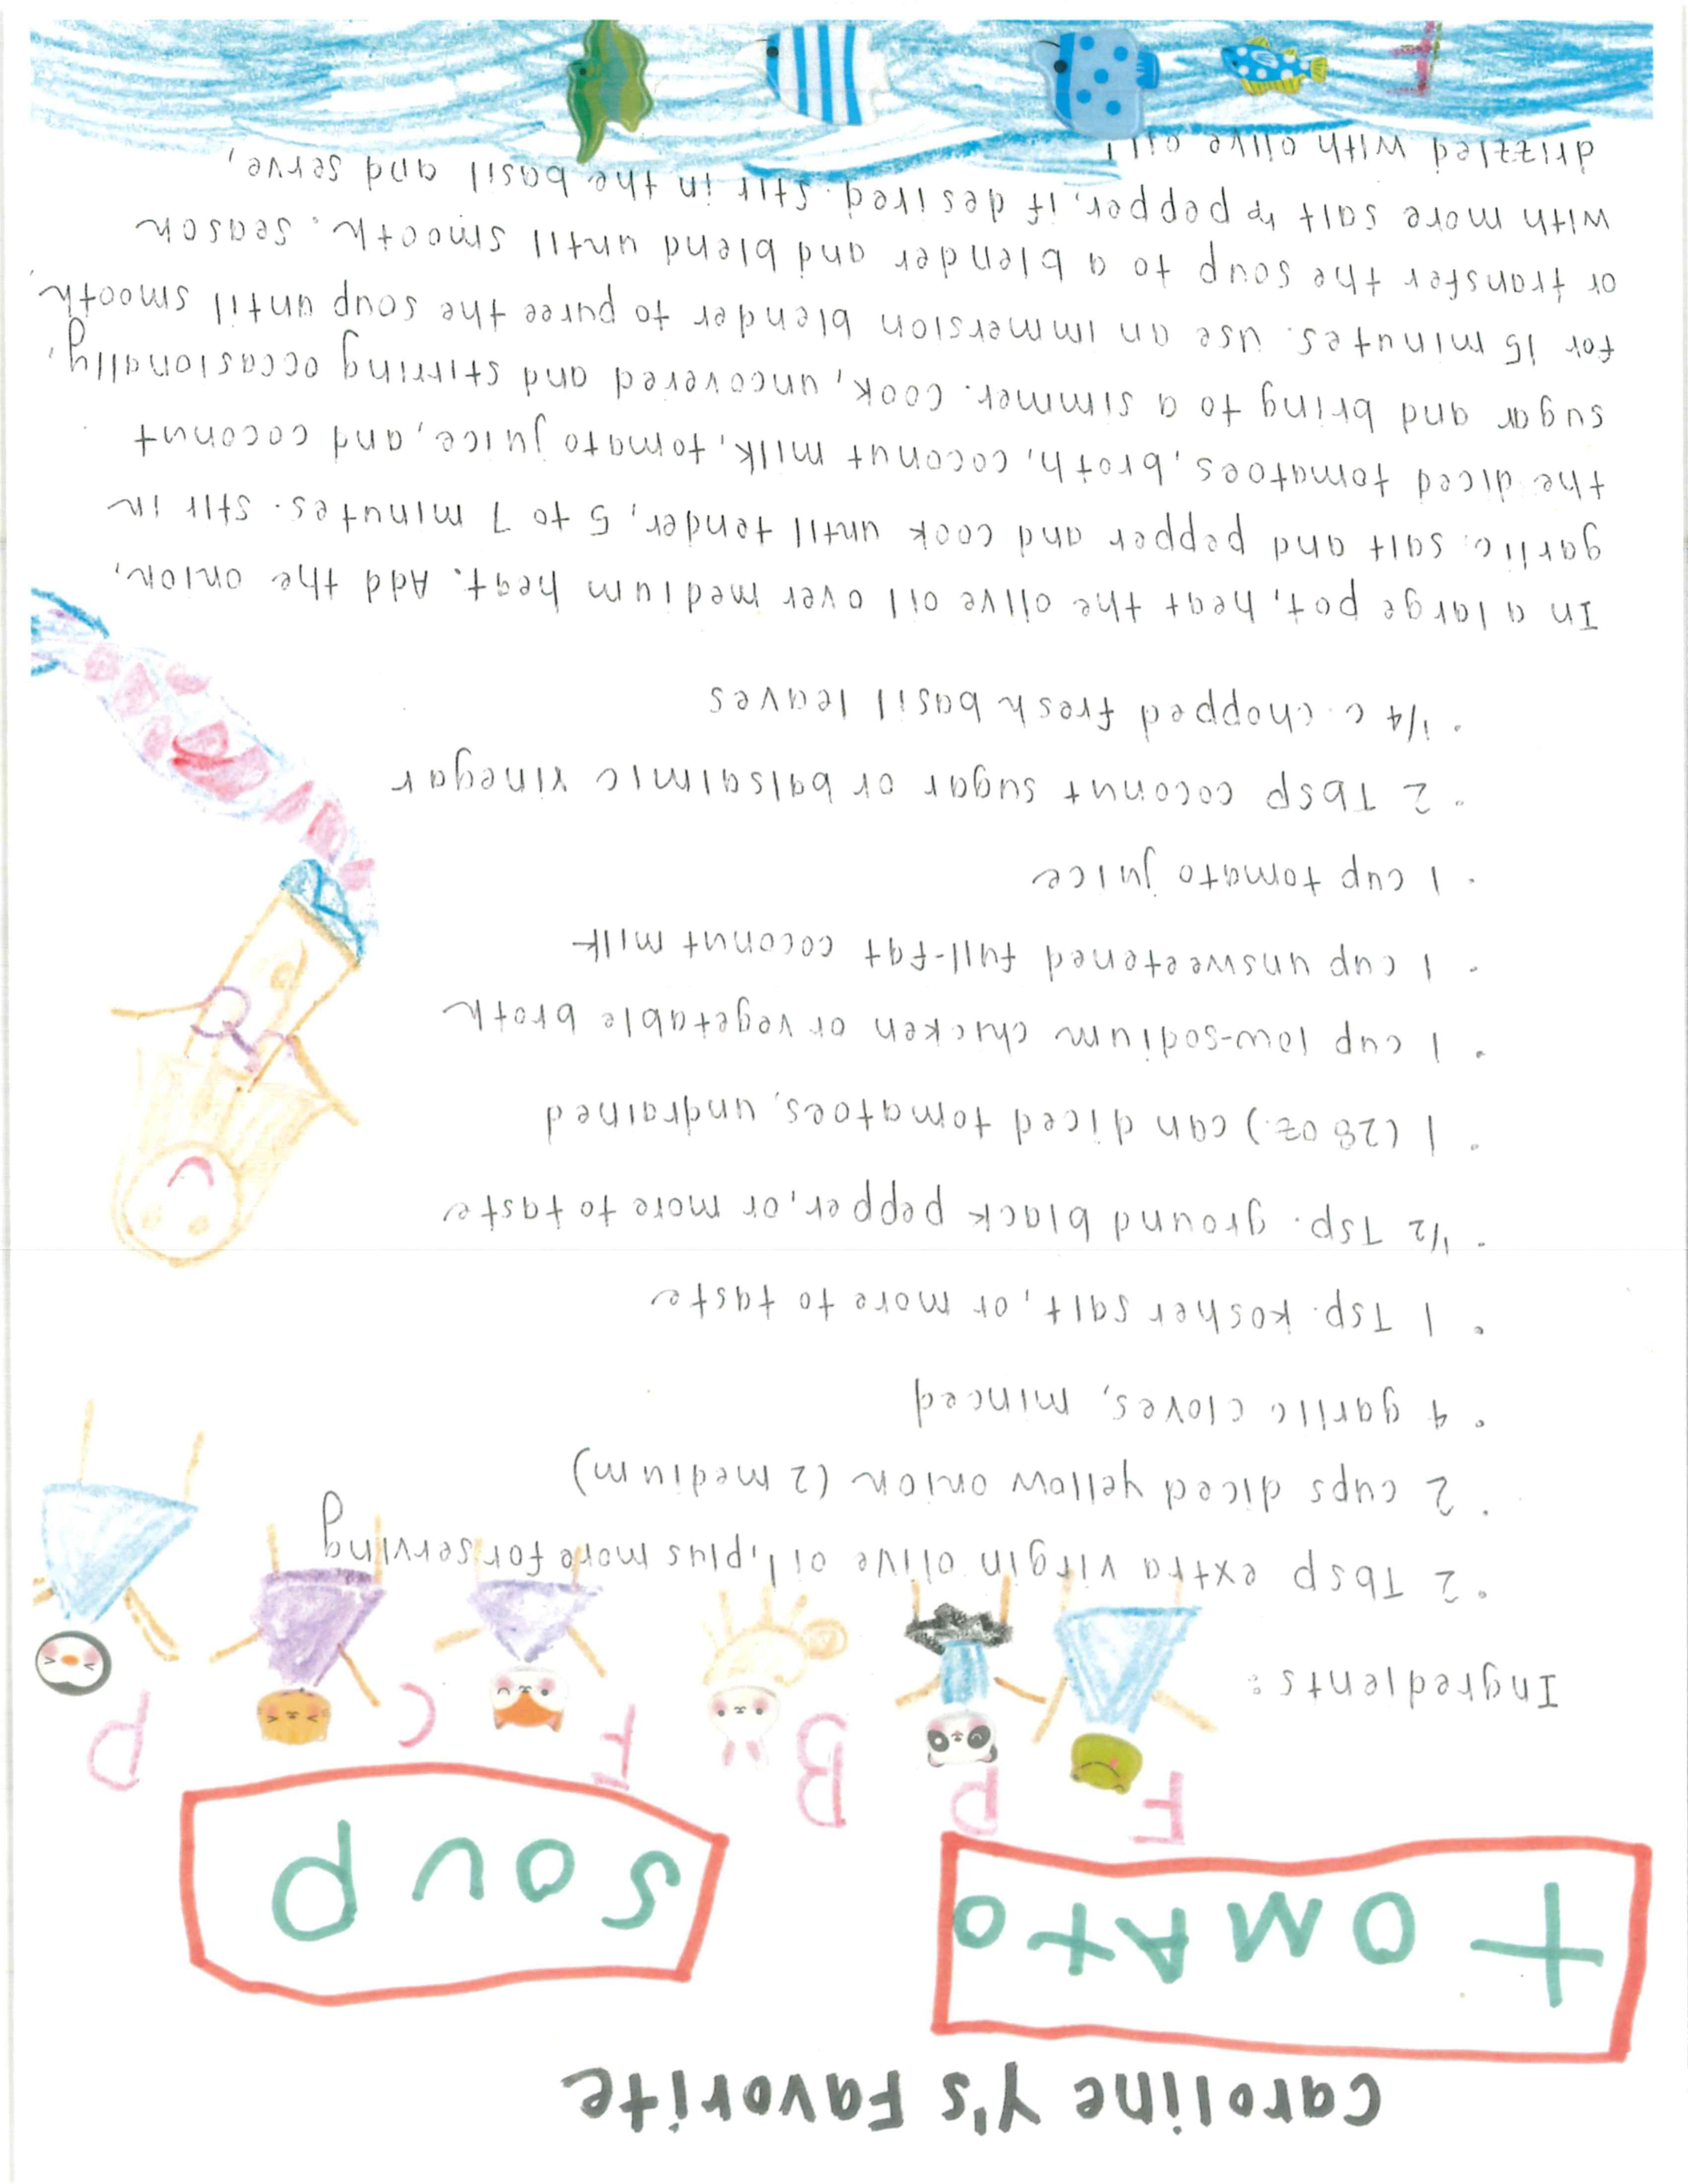 Caroline Y's Favorite
TOMATO SOUP
F P B F C P
Ingredients:
• 2 Tbsp extra virgin olive oil, plus more for serving
• 2 cups diced yellow onion (2 medium)
• 4 garlic cloves, minced
• 1 Tsp. kosher salt, or more to taste
• 1/2 Tsp. ground black pepper, or more to taste
• 1 (28 oz.) can diced tomatoes, undrained
• 1 cup low-sodium chicken or vegetable broth
• 1 cup unsweetened full-fat coconut milk
• 1 cup tomato juice
• 2 Tbsp coconut sugar or balsalmic vinegar
• 1/4 c. chopped fresh basil leaves
In a large pot, heat the olive oil over medium heat. Add the onion,
garlic, salt and pepper and cook until tender, 5 to 7 minutes. Stir in
the diced tomatoes, broth, coconut milk, tomato juice, and coconut
sugar and bring to a simmer. Cook, uncovered and stirring occasionally,
for 15 minutes. Use an immersion blender to puree the soup until smooth,
or transfer the soup to a blender and blend until smooth. Season
with more salt & pepper, if desired. Stir in the basil and serve,
drizzled with olive oil!